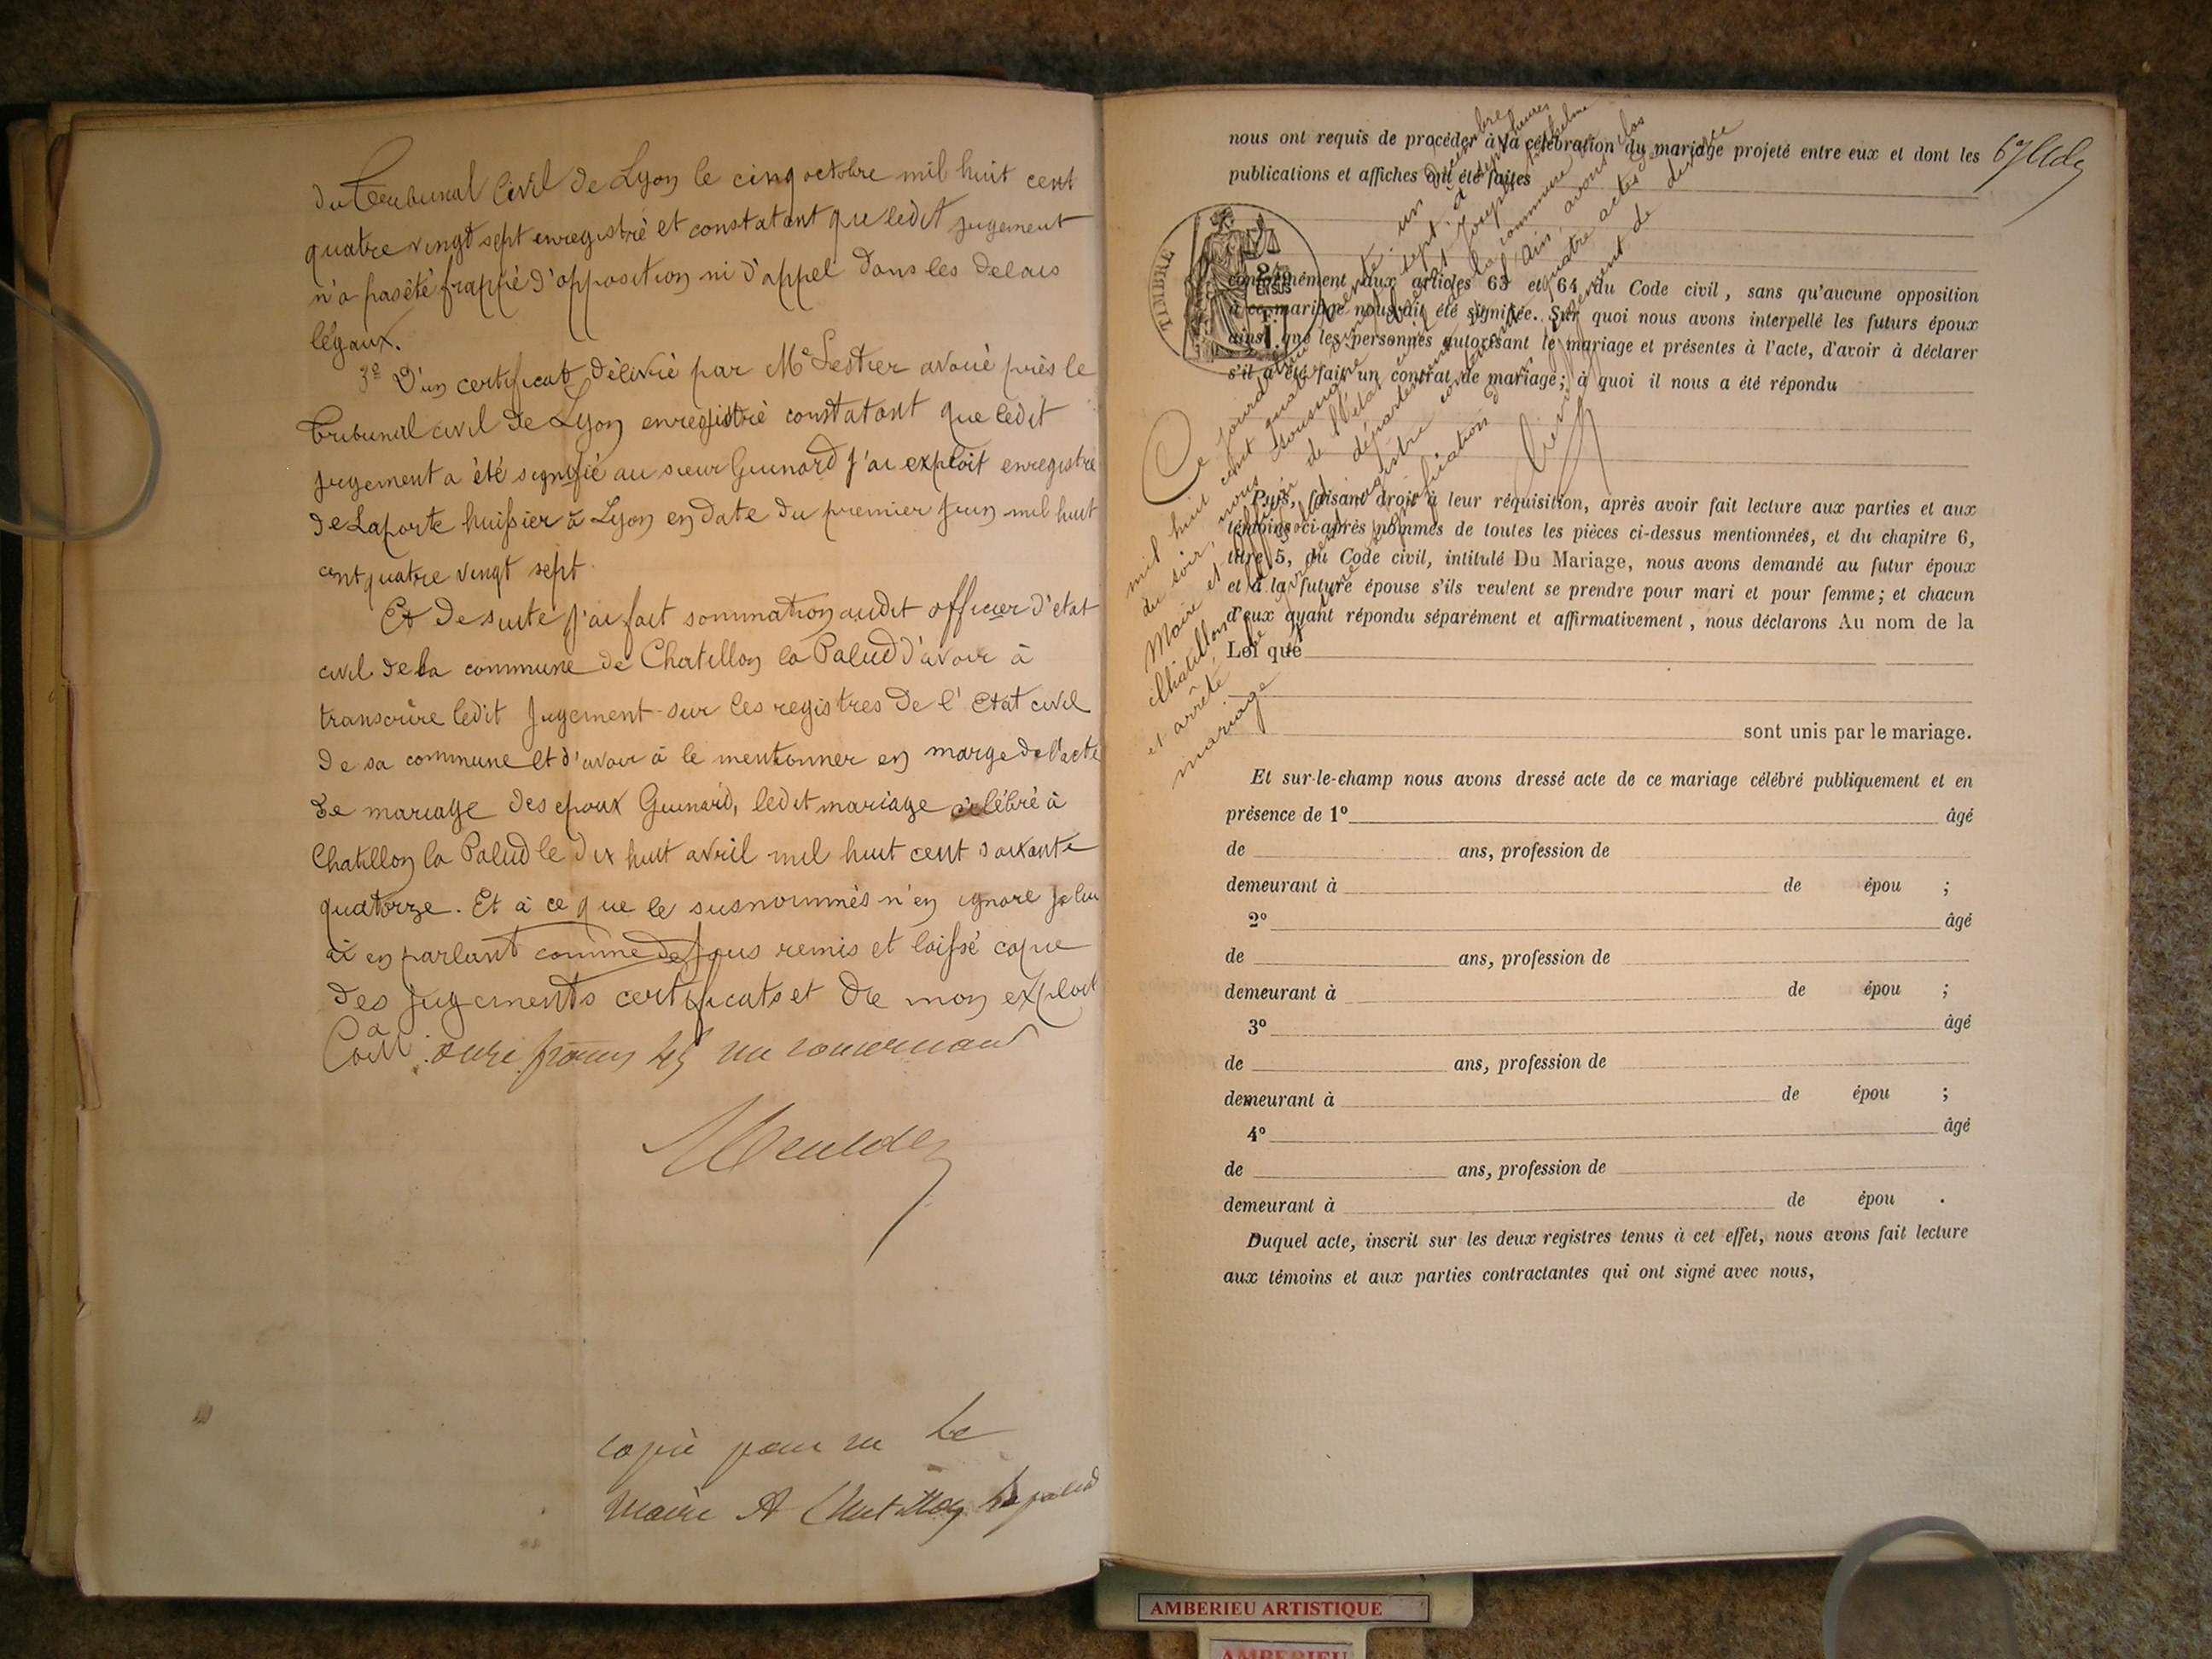 du Tribunal Civil de Lyon le cinq octobre mil huit cent
quatre vingt sept enregistré et constatant que ledit jugement
n'a pas été frappé d'opposition ni d'appel dans les delais
légaux.
3º D'un certificat délivré par Me Lestier avoué près le
Tribunal civil de Lyon enregistré constatant que ledit
jugement a été signifié au sieur Guinard p' ai exploit enregistré
de Laporte huissier à Lyon en date du premier juin mil huit
cent quatre vingt sept.
Et de suite j'ai fait sommation audit officier d'etat
civil de la commune de Chatillon la Palud d'avoir à
transcrire ledit jugement sur les registres de l'Etat civil
de sa commune et d'avoir à le mentionner en marge de l'acte
de mariage des epoux Guinard, ledit mariage célébré à
Chatillon la Palud le dix huit avril mil huit cent soixante
quatorze. Et à ce que le susnommés n'en ignore je lui
ai en parlant comme dessus remis et laissé copie
des jugements certificats et de mon exploit
Coût :
copie pour m le
Maire A Chatillon la palud
nous ont requis de procéder à la célébration du mariage projeté entre eux et dont les
publications et affiches ont été faites
TIMBRE
conformément aux articles 63 et 64 du Code civil, sans qu'aucune opposition
à ce mariage nous ait été signifiée. Sur quoi nous avons interpellé les futurs époux
ainsi que les personnes autorisant le mariage et présentes à l'acte, d'avoir à déclarer
s'il a été fait un contrat de mariage; à quoi il nous a été répondu
Puis, faisant droit à leur réquisition, après avoir fait lecture aux parties et aux
témoins ci-après nommés de toutes les pièces ci-dessus mentionnées, et du chapitre 6,
titre 5, du Code civil, intitulé Du Mariage, nous avons demandé au futur époux
et à la future épouse s'ils veulent se prendre pour mari et pour femme; et chacun
d'eux ayant répondu séparément et affirmativement, nous déclarons Au nom de la
Loi que
sont unis par le mariage.
Et sur-le-champ nous avons dressé acte de ce mariage célébré publiquement et en
présence de 1º âgé
de ans, profession de
demeurant à de épou ;
2º âgé
de ans, profession de
demeurant à de épou ;
3º âgé
de ans, profession de
demeurant à de épou ;
4º âgé
de ans, profession de
demeurant à de épou .
Duquel acte, inscrit sur les deux registres tenus à cet effet, nous avons fait lecture
aux témoins et aux parties contractantes qui ont signé avec nous,
Ce jourd'hui trente un décembre
mil huit cent quatre vingt sept à sept heures
du soir, nous soussigné Joseph Anthelme
Maire et officier de l'état civil de la commune de
Chatillon la Palud département de l'Ain, avons clos
et arrêté le présent registre contenant quatre actes de
mariage
AMBERIEU ARTISTIQUE
AMBERIEU